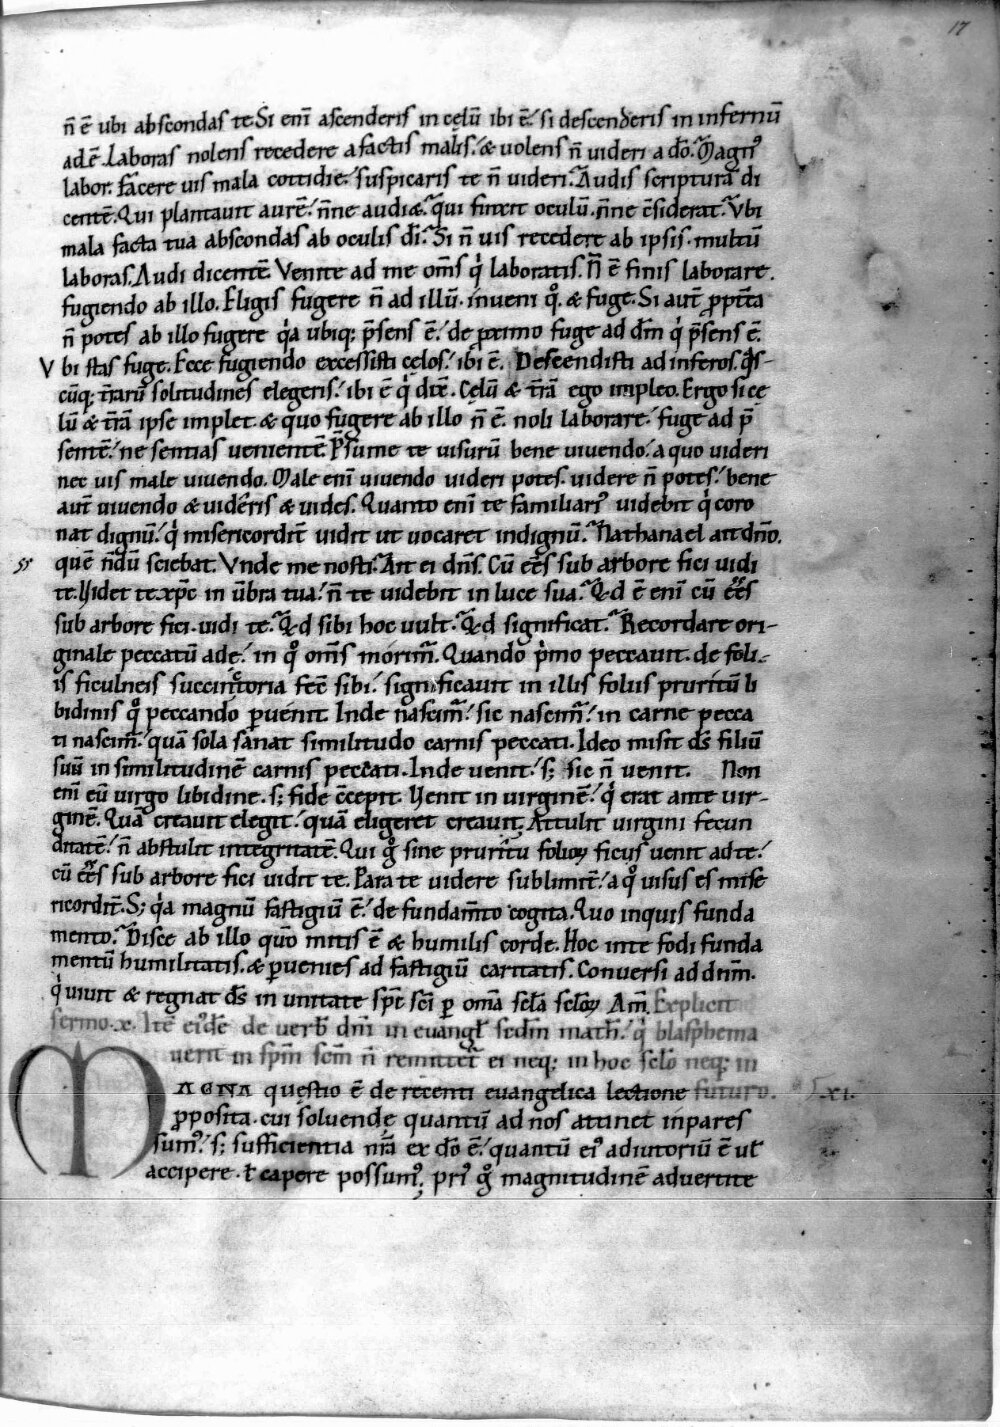 17
n̄ ē ubi abscondas te. Si enī ascenderis in cęlū ibi ē. si descenderis in infernū
adē. Laboras nolens recedere a factis malis. & uolens n̄ uideri a dō. Magnꝰ
labor. facere uis mala cottidie. suspicaris te n̄ uideri. Audis scripturā di
centē. Qui plantauit aurē. n̄ne audi&. qui finxit oculū. n̄ne c̄siderat. Vbi
mala facta tua abscondas ab oculis dī. Si n̄ uis recedere ab ipsis. multū
laboras. Audi dicentē Venite ad me om̄s qi laboratis. N̄ ē finis laborare.
fugiendo ab illo. Eligis fugere n̄ ad illū. inueni qo. & fuge. Si aut̄ ꝓpt̄ea
n̄ potes ab illo fugere qia ubiq; p̄sens ē. de proximo fuge ad dm̄ qi p̄sens ē.
Vbi stas fuge. Ecce fugiendo excessisti cęlos. ibi ē. Descendisti ad inferos. qis-
cūq; t̄rarū solitudines elegeris. ibi ē qi dix̄. Cęlū & t̄rā ego impleo. Ergo si cę
lū & t̄rā ipse implet. & quo fugere ab illo n̄ ē. noli laborare. fuge ad p̄
sentē. ne sentias uenientē. P̄sume te uisurū bene uiuendo. a quo uideri
nec uis male uiuendo. Male enī uiuendo uideri potes. uidere n̄ potes. bene
aut̄ uiuendo & uiderīs & uides. Quanto enī te familiariꝰ uidebit qi coro
nat dignū. qi misericordit̄ uidit ut uocaret indignū. Nathanael ait dn̄o.
quē n̄dū sciebat. Vnde me nosti. Ait ei dn̄s. Cū eēs sub arbore fici uidi
te. Videt te xp̄c in ūbra tua. n̄ te uidebit in luce sua. Qd ē enī cū eēs
sub arbore fici. uidi te. Qd sibi hoc uult. Qd significat. Recordare ori-
ginale peccatū adę. in qo om̄s morimꝰ. Quando pimo peccauit. de foli-
is ficulneis succinctoria fec̄ sibi. significauit in illis foliis pruritū li
bidinis qo peccando ꝑuenit. Inde nascimꝰ. sic nascimꝰ. in carne pecca
ti nascimꝰ. quā sola sanat similitudo carnis peccati. Ideo misit ds̄ filiū
suū in similitudinē carnis peccati. Inde uenit. s; sic n̄ uenit. Non
enī eū uirgo libidine. s; fide c̄cepit. Venit in uirginē. qi erat ante uir-
ginē. Quā creauit elegit. quā eligeret creauit. Attulit uirgini fecun
ditatē. n̄ abstulit integritatē. Qui go sine pruritu folioꝝ ficus uenit ad te.
cū eēs sub arbore fici uidit te. Para te uidere sublimit̄. a qo uisus es mise
ricordit̄. S; qia magnū fastigiū ē. de fundam̄to cogita. Quo inquis funda
mento. Disce ab illo quō mitis ē & humilis corde. Hoc in te fodi funda
mentū humilitatis. & ꝑuenies ad fastigiū caritatis. Conuersi ad dn̄m.
qi uiuit & regnat ds̄ in unitate sp̄c sc̄i ꝑ om̄a scl̄a scl̄oꝝ Am̄. Explicit
sermo .x. Itē eiꝰdē de uerb̄ dn̄i in euangl̄ scdm̄ math̄. qi blasphema
uerit in sp̄m sc̄m n̄ remittet̄ ei neq; in hoc scl̄o neq; in
MAGNA questio ē de recenti euangelica lectione futuro. xi.
ꝓposita. cui soluendę quantū ad nos attinet inpares
sumꝰ. s; sufficientia nr̄a ex dō ē. quantū eiꝰ adiutoriū ē ul̄
accipere. ł capere possumꝰ. priꝰ go magnitudinē aduertite